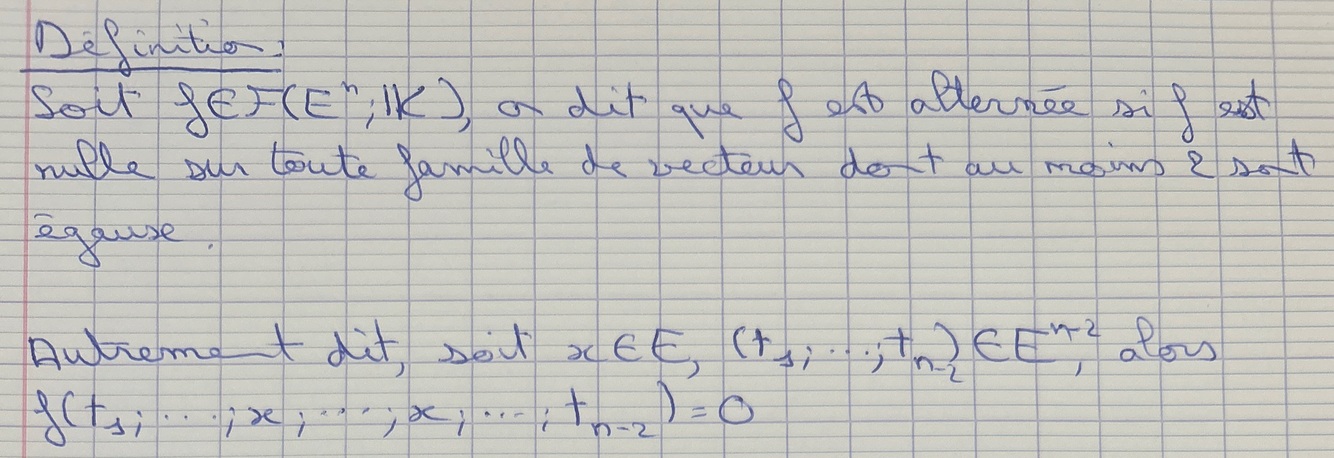 Définition:
Soit f∈F(Eⁿ;𝕂), on dit que f est alternée si f est
nulle sur toute famille de vecteur dont au moins 2 sont
égaux.
Autrement dit, soit x∈E, (t₁;...;tₙ₋₂)∈Eⁿ⁻², alors
f(t₁;...;x;...;x;...;tₙ₋₂)=0